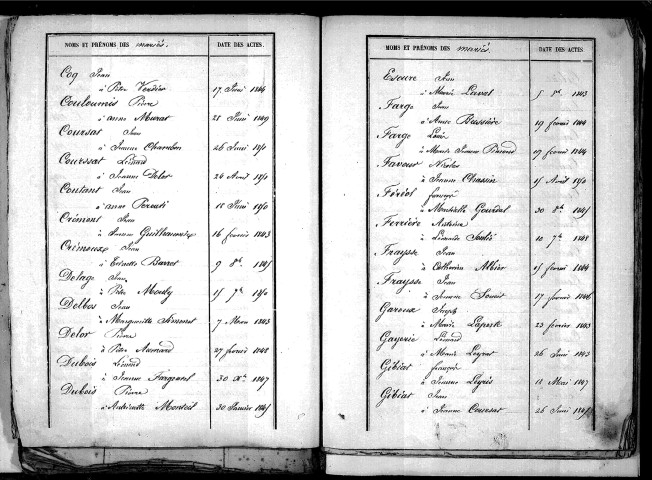 NOMS ET PRÉNOMS DES mariés. DATE DES ACTES.
Coq Jean
à Pètre Verdier 17 Juin 1844
Couloumis Pierre
à anne Murat 28 Juin 1849
Coursat Jean
à Jeanne Chambon 26 Juin 1850
Courssat Léonard
à Jeanne Delor 24 Avril 1850
Coutant Jean
à anne 18 Juin 1850
Crémont Jean
à Jeanne 16 février 1843
Crémoux Jean
à Barret 9 8bre 1845
Delage Jean
à Mouly 15 7bre 1850
Delbos Jean
à Marguerite Simonet 7 Mars 1843
Delor Pierre
à Aumard 27 février 1848
Dubois Léonard
à Jeanne 30 Xbre 1847
Dubois Pierre
à Antoinette Monteil 30 Janvier 1845
NOMS ET PRÉNOMS DES mariés. DATE DES ACTES
Escure Jean
à Marie Laval 5 8bre 1843
Farge Jean
à Anne Bussière 19 février 1844
Farge Louis
à Marie Jeanne 19 février 1844
Faveur Nicolas
à Jeanne Chassin 15 Avril 1850
Fériol françois
à Gourdal 30 8bre 1845
Ferrière Antoine
à Léonarde 10 7bre 1848
Fraysse Jean
à Catherine Albier 15 février 1844
Fraysse Jean
à Jeanne 17 février 1846
Garoux Joseph
à Marie Laporte 23 février 1843
Gayerie Léonard
à Marie Leyrat 26 Juin 1843
Gibiat françois
à Jeanne Leyris 12 Mai 1847
Gibiat Jean
à Jeanne Coursat 26 Juin 1845